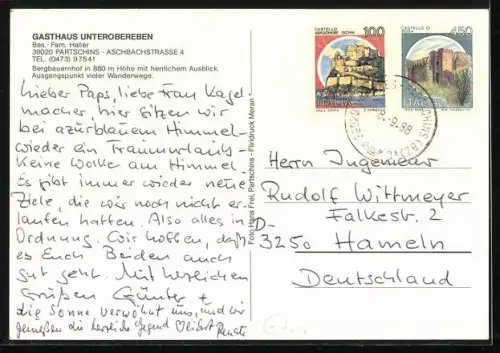 GASTHAUS UNTEROBEREBEN
Bes.: Fam. Haller
39020 PARTSCHINS - ASCHBACHSTRASSE 4
TEL. (0473) 97541
Bergbauernhof in 880 m Höhe mit herrlichem Ausblick.
Ausgangspunkt vieler Wanderwege.
Lieber Paps, liebe Frau Kagel-
macher, hier sitzen wir
bei azurblauem Himmel
wieder ein Traumurlaub -
Keine Wolke am Himmel.
Es gibt immer wieder neue
Ziele, die wir noch nicht er-
laufen hatten. Also alles in
Ordnung. Wir hoffen, daß
es Euch Beiden auch
gut geht. Mit herzlichen
Grüßen Günter +
die Sonne verwöhnt uns, und wir
genießen die herrliche Gegend
Renate
Foto Hans Frei, Partschins - Flridruck Meran
CASTELLO ARAGONESE - ISCHIA
100
ITALIA
CASTELLO DI
450
ITALIA
Herrn Ingenieur
Rudolf Wittmeyer
Falkestr. 2
D-
3250 Hameln
Deutschland